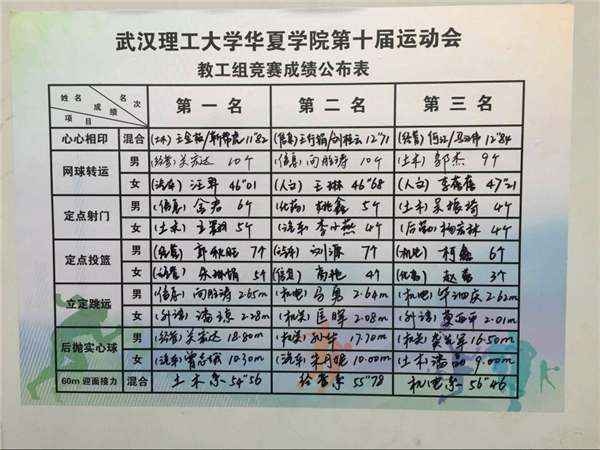 武汉理工大学华夏学院第十届运动会
教工组竞赛成绩公布表
姓名 成绩 名次 项目 第一名 第二名 第三名
心心相印 混合 (土木) 11"82 (信息) 12"71 (经管) 12"84
网球转运 男 (经管) 关宏达 10个 (信息) 向胜涛 10个 (土木) 郭杰 9个
女 (汽车) 汪昇 46"01 (人文) 王琳 46"68 (人文) 李蓓蓓 47"21
定点射门 男 (信息) 金君 6个 (化药) 姚鑫 5个 (土木) 吴振琦 4个
女 (土木) 王翔 5个 (汽车) 李小燕 4个 (后勤) 杨若林 4个
定点投篮 男 (经管) 郭秋旺 7个 (汽车) 刘源 7个 (机电) 柯鑫 6个
女 (经管) 5个 (信息) 4个 (化药) 赵 3个
立定跳远 男 (信息) 向胜涛 2.65m (机电) 马勇 2.64m (机关) 2.62m
女 (外语) 潘琼 2.28m (机关) 匡晖 2.08m (外语) 2.01m
后抛实心球 男 (经管) 关宏达 18.80m (机关) 孙华 17.70m (机关) 16.50m
女 (汽车) 10.30m (汽车) 10.00m (土木) 潘 9.00m
60m 迎面接力 混合 土木系 54"56 经管系 55"78 机电系 56"46